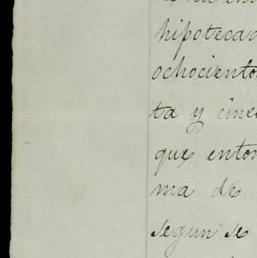 hipotecad
ochociento
ta y cinc
que enton
ma de
segun se